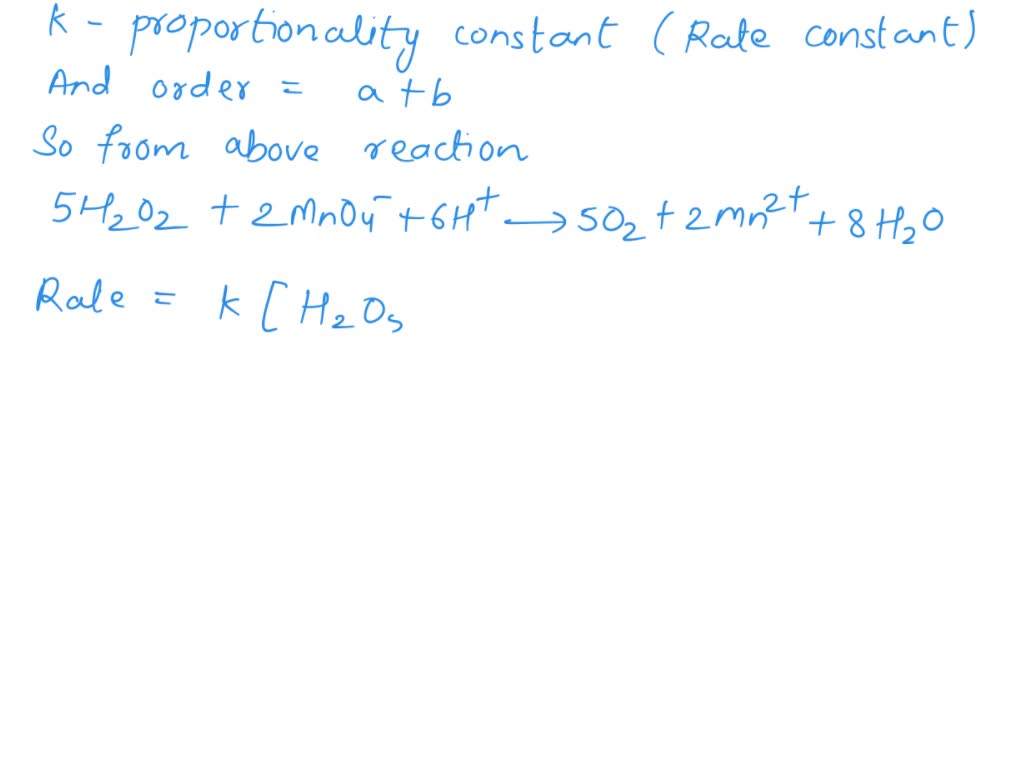 k - proportionality constant (Rate constant)
And order = a+b
So from above reaction
5H₂O₂ + 2MnO₄⁻ + 6H⁺ → 5O₂ + 2mn²⁺ + 8H₂O
Rate = k[H₂O₅